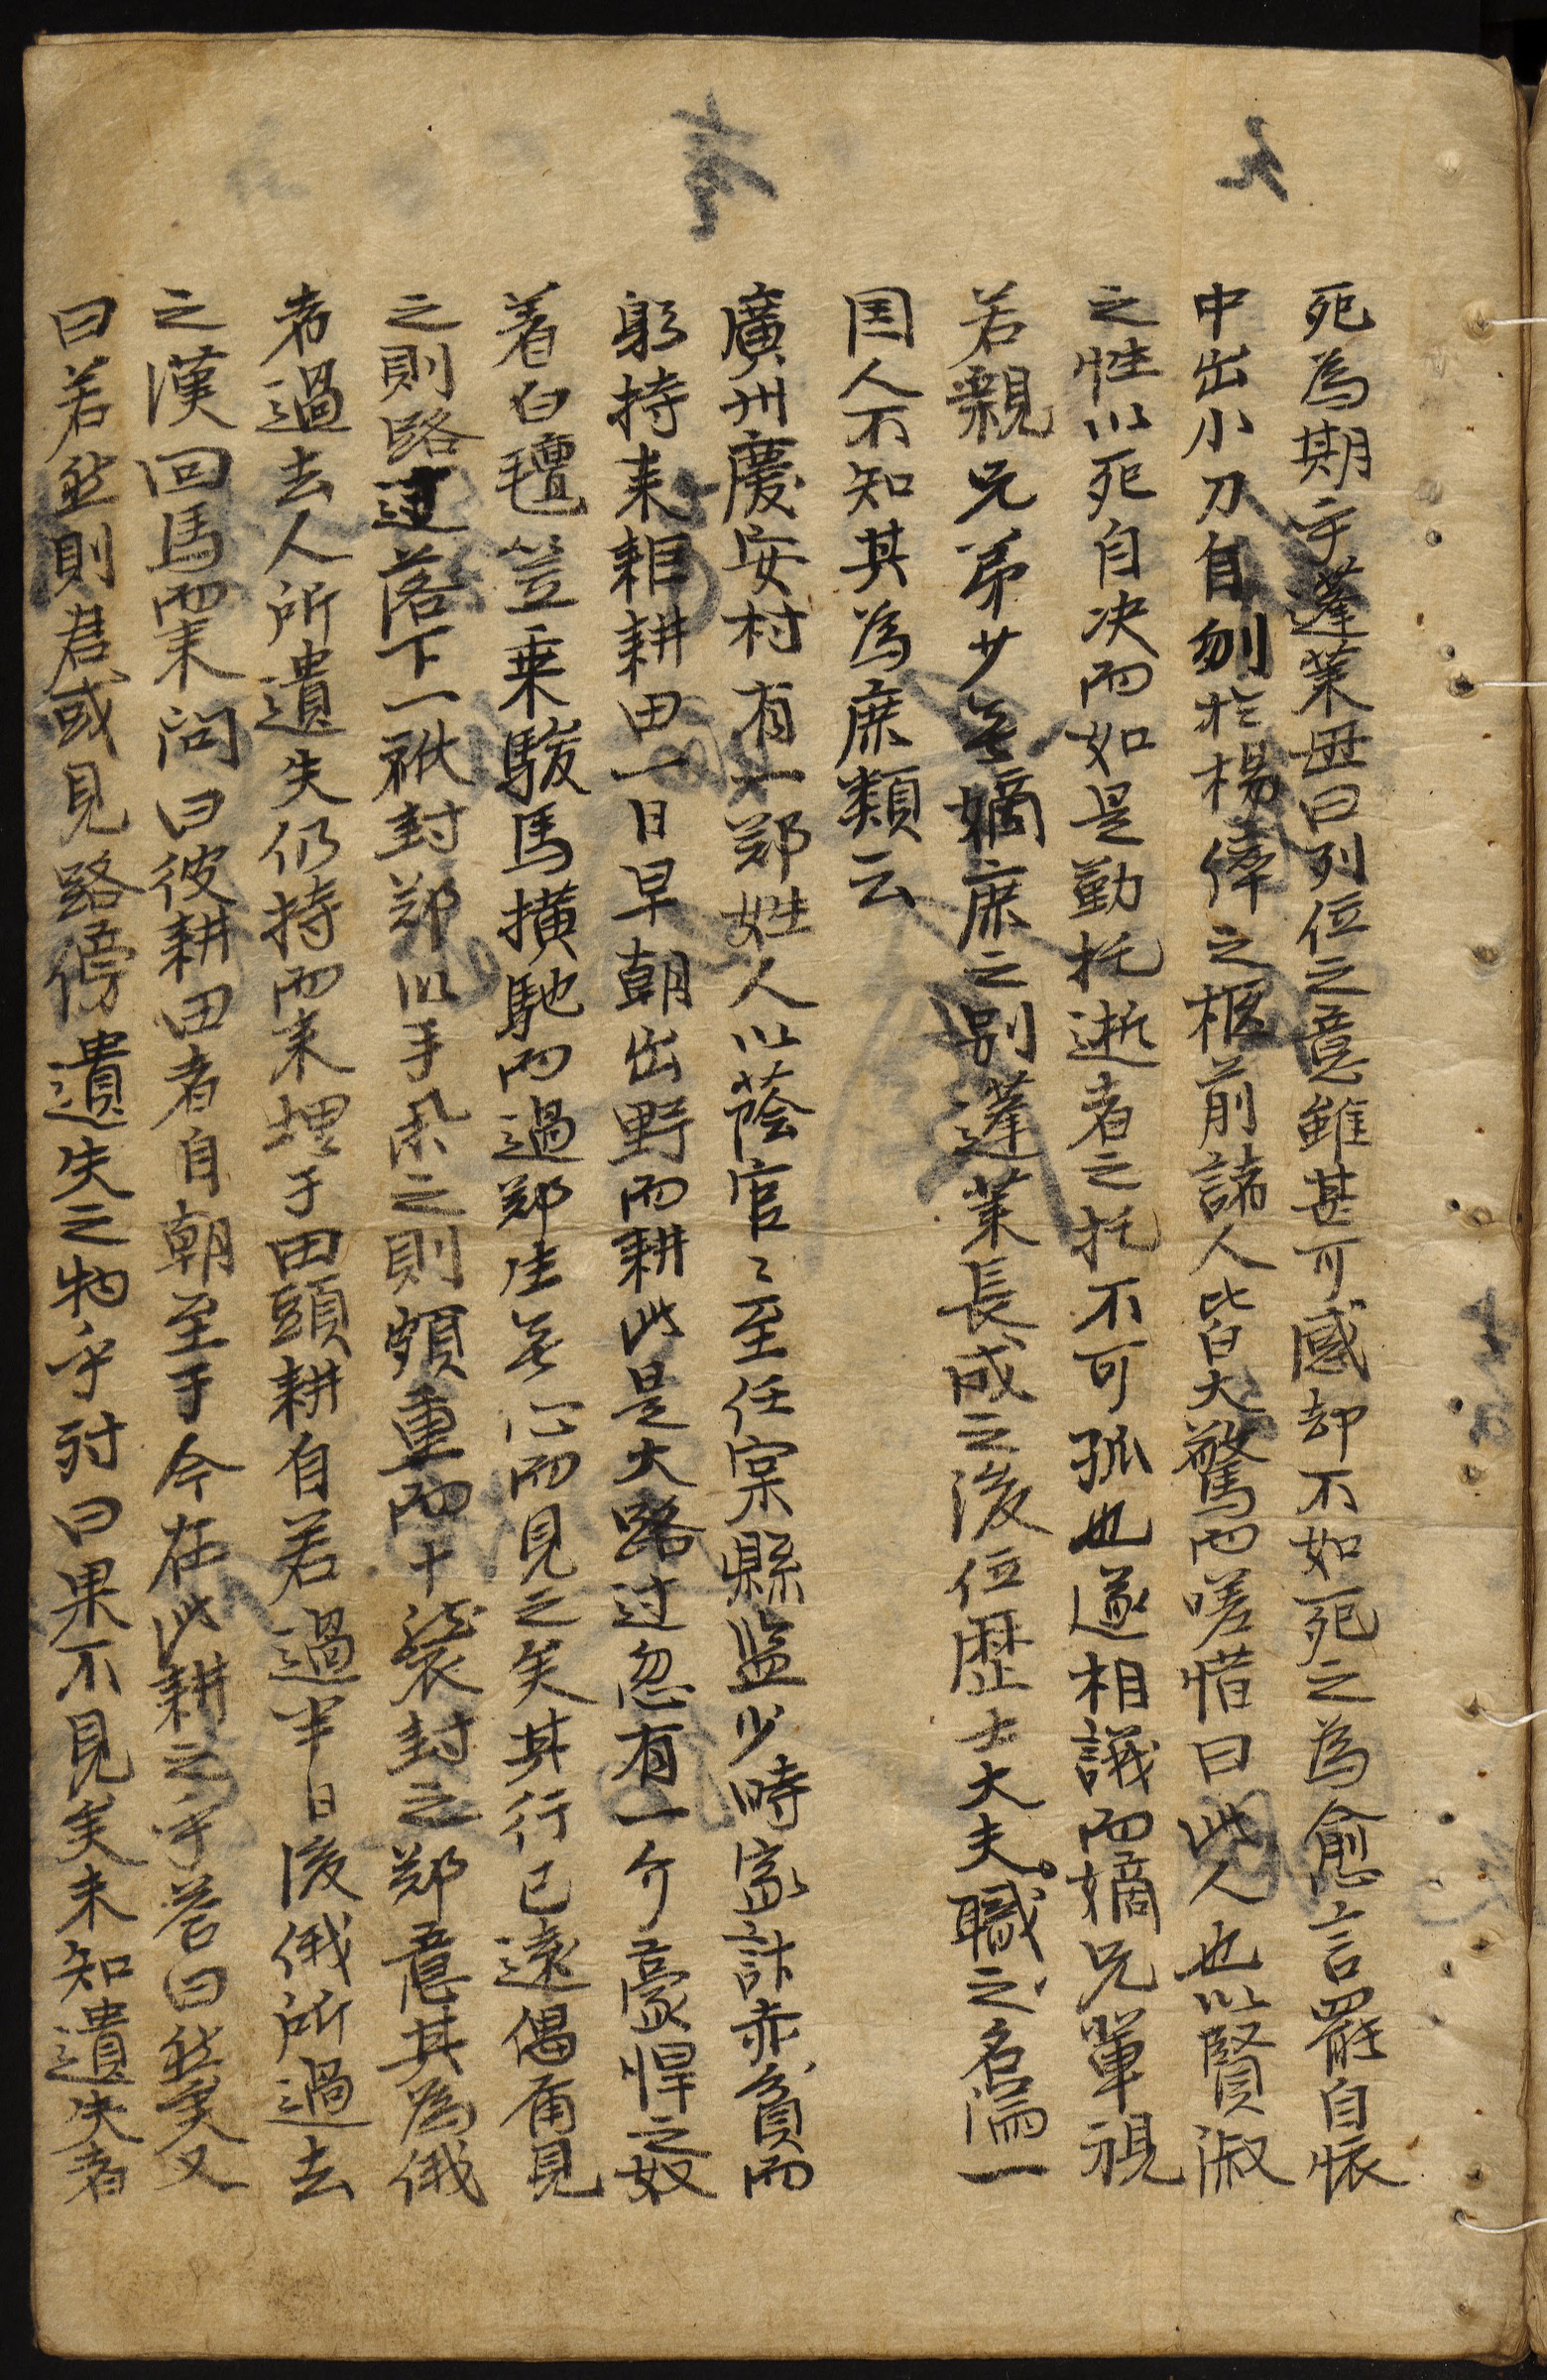 死為期乎蓬萊母曰列位之意雖甚可感却不如死之為愈言罷自懷
中出小刀自刎於楊倅之柩前諸人皆大驚而嗟惜曰此人也以賢淑
之性以死自决而如是勤托逝者之托不可孤也遂相議而嫡兄輩視
若親兄弟少無嫡庶之別蓬萊長成之後位歷士大夫職之名滿一
国人不知其為庶類云
廣州慶安村有一鄭姓人以蔭官ミ至任宲縣監少時家計赤貧而
躬持耒耜耕田一日早朝出野而耕此是大路过忽有一介豪悍之奴
着白氊笠乗駿馬横馳而過鄭生無心而見之矣其行已遠偶爾見
之則路邊落下一袱封鄭以手采之則頗重而十襲封之鄭意其為俄
者過去人所遺失仍持而来埋于田頭耕自若過半日後俄所過去
之漢回馬而来问曰彼耕田者自朝至于今在此耕之乎荅曰然矣又
曰若然則君或見路傍遺失之物乎对曰果不見矣未知遺失者